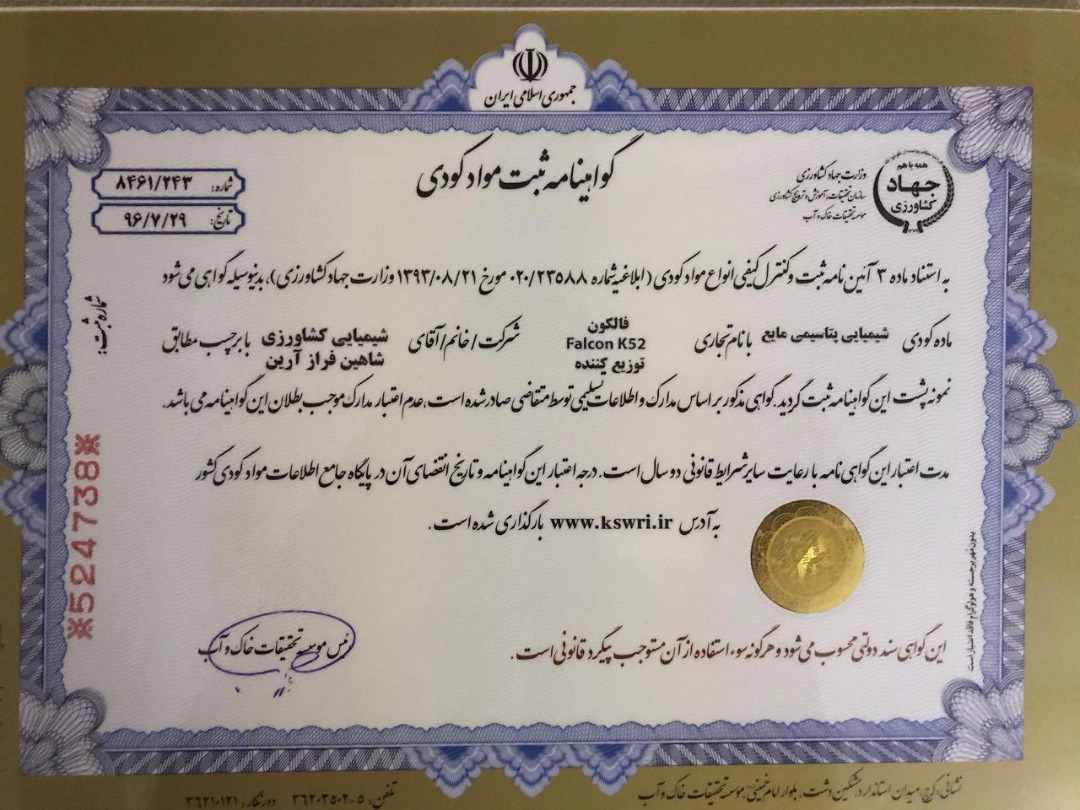 جمهوری اسلامی ایران
گواهینامه ثبت مواد کودی
همه با هم
جهاد
کشاورزی
وزارت جهاد کشاورزی
سازمان تحقیقات، آموزش و ترویج کشاورزی
موسسه تحقیقات خاک و آب
شماره: ۸۴۶۱/۲۴۳
تاریخ: ۹۶/۷/۲۹
به استناد ماده ۳ آئین نامه ثبت و کنترل کیفی انواع مواد کودی (ابلاغیه شماره ۰۲۰/۲۳۵۸۸ مورخ ۱۳۹۳/۰۸/۲۱ وزارت جهاد کشاورزی)، بدینوسیله گواهی می شود
ماده کودی شیمیایی پتاسیمی مایع با نام تجاری فالکون Falcon K52 توزیع کننده شرکت/خانم/آقای شیمیایی کشاورزی شاهین فراز آرین با برچسب مطابق
نمونه پشت این گواهینامه ثبت گردید. گواهی مذکور بر اساس مدارک و اطلاعات تسلیمی توسط متقاضی صادر شده است، عدم اعتبار مدارک موجب بطلان این گواهینامه می باشد.
مدت اعتبار این گواهی نامه با رعایت سایر شرایط قانونی دو سال است. درجه اعتبار این گواهینامه و تاریخ انقضای آن در پایگاه جامع اطلاعات مواد کودی کشور
به آدرس www.kswri.ir بارگذاری شده است.
شماره ثبت:
※524738※
بدون مهر برجسته و هولوگرام فاقد اعتبار است
رئیس موسسه تحقیقات خاک و آب
این گواهی سند دولتی محسوب می شود و هرگونه سوء استفاده از آن مستوجب پیگرد قانونی است.
نشانی: کرج، میدان استاندارد، مشکین دشت، بلوار امام خمینی، موسسه تحقیقات خاک و آب
تلفن: ۵-۳۶۲۰۳۵۰۲ دورنگار: ۳۶۲۱۰۱۲۱